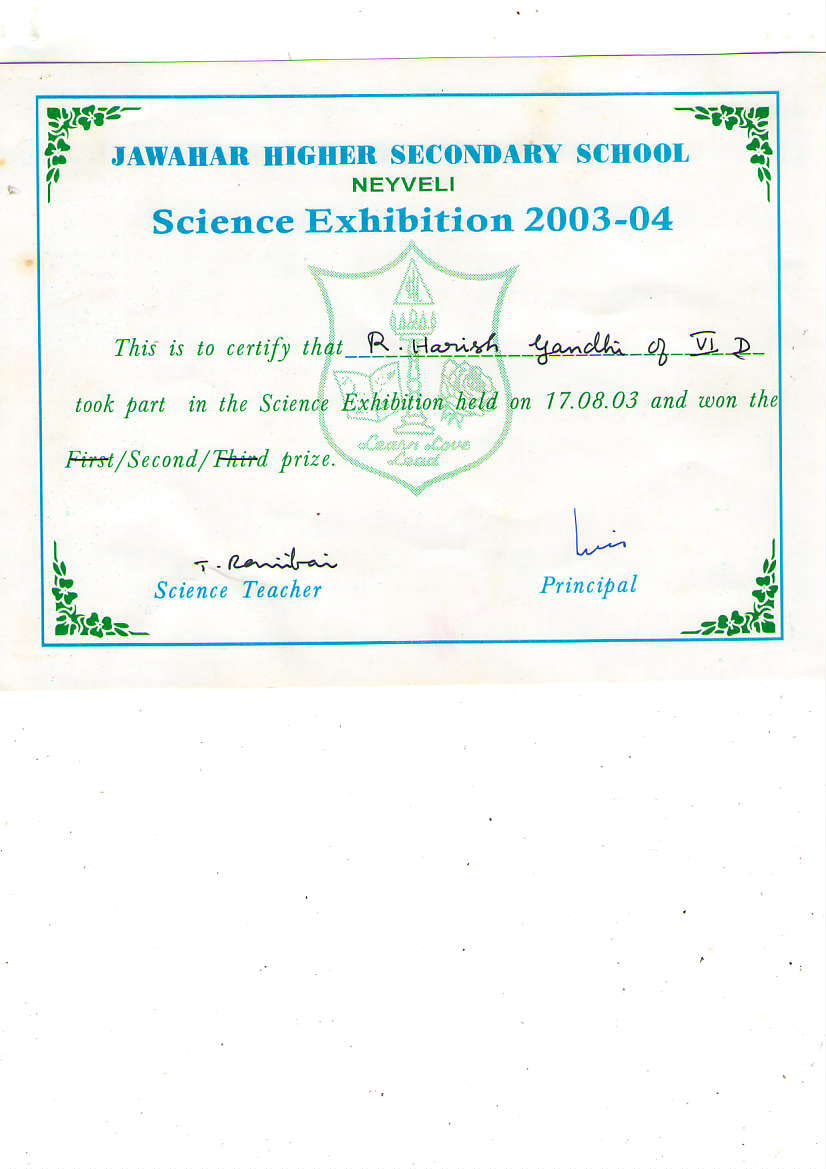 JAWAHAR HIGHER SECONDARY SCHOOL
NEYVELI
Science Exhibition 2003-04
This is to certify that R. Harish Gandhi of VI D
took part in the Science Exhibition held on 17.08.03 and won the
First/Second/Third prize.
Learn Love
Lead
T. Ranibai
Science Teacher
Principal